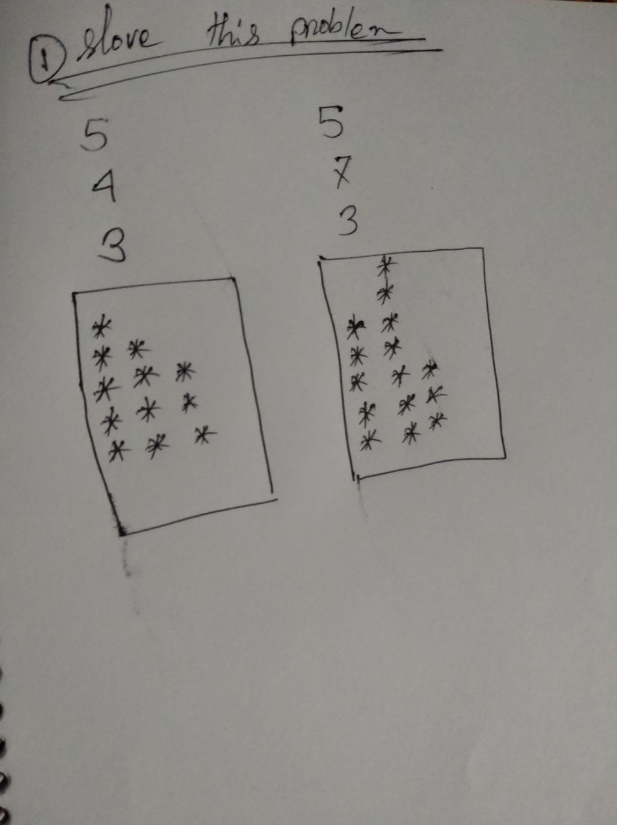 ① slove this problem
5 5
4 7
3 3
*
*
* *
* * * *
* * * * *
* * * * * *
* * * * * *